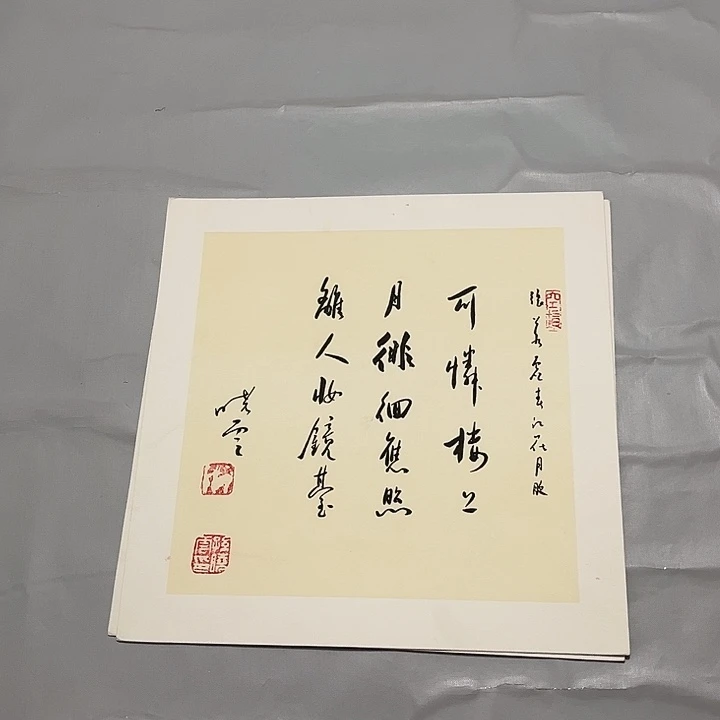 張若虛春江花月夜
可憐樓上
月徘徊應照
離人妝鏡臺
曉雲